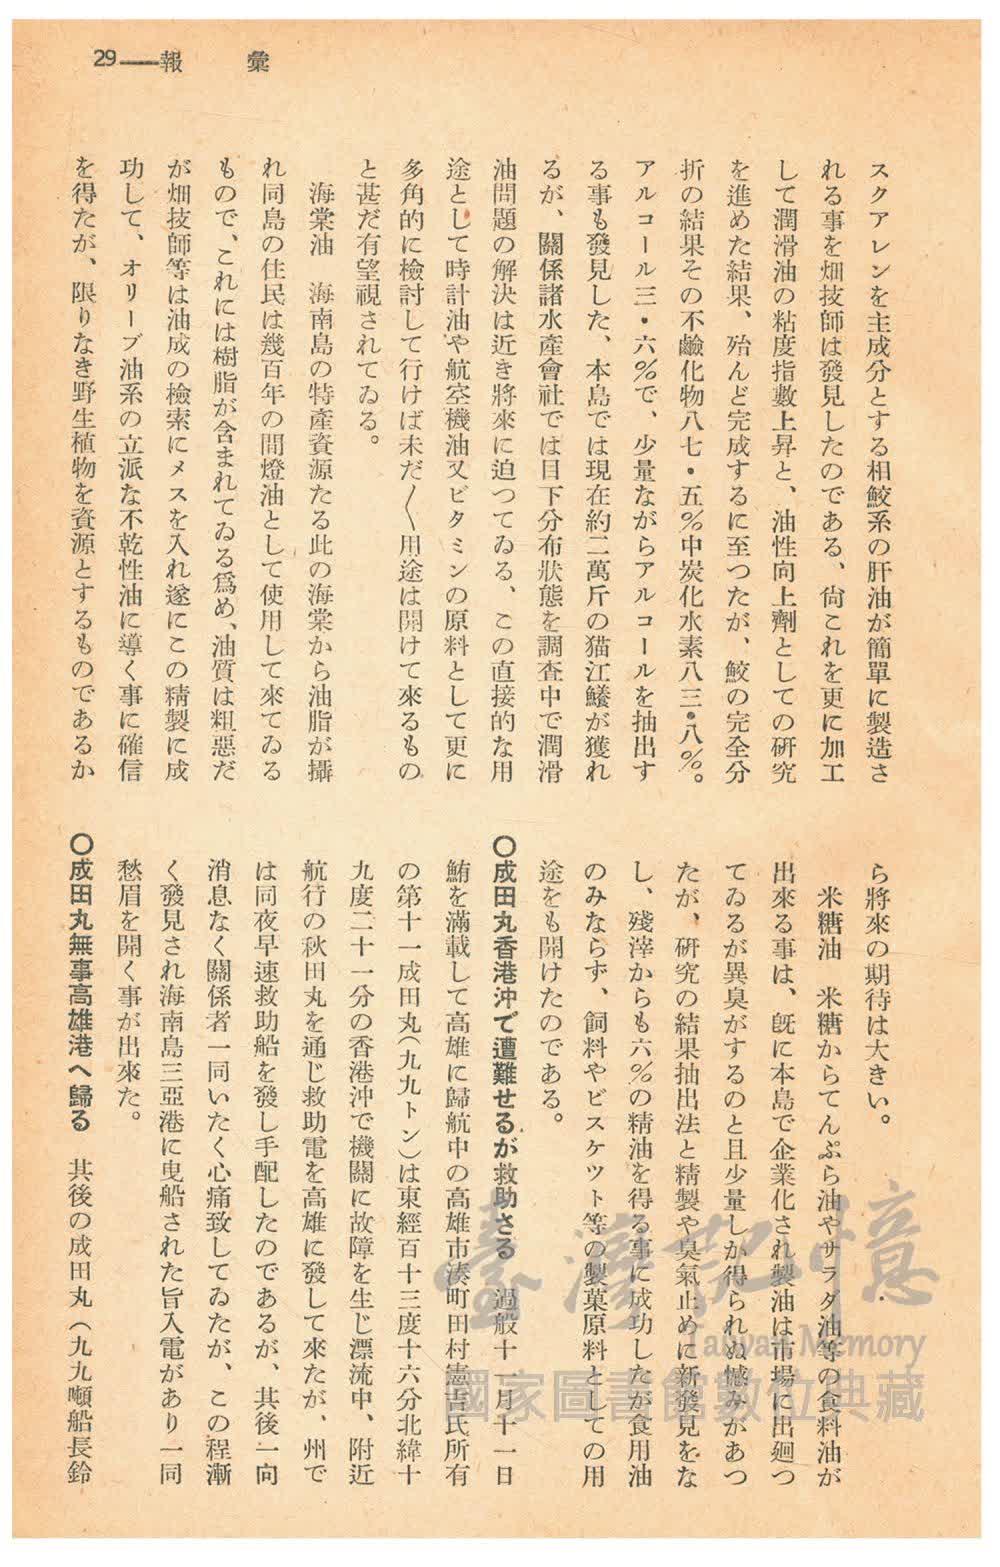 29——報　彙
スクアレンを主成分とする相鮫系の肝油が簡單に製造さ
れる事を畑技師は發見したのである、尙これを更に加工
して潤滑油の粘度指數上昇と、油性向上劑としての硏究
を進めた結果、殆んど完成するに至つたが、鮫の完全分
折の結果その不鹼化物八七・五％中炭化水素八三・八％。
アルコール三・六％で、少量ながらアルコールを抽出す
る事も發見した、本島では現在約二萬斤の猫江鱶が獲れ
るが、關係諸水產會社では目下分布狀態を調査中で潤滑
油問題の解決は近き將來に迫つてゐる、この直接的な用
途として時計油や航空機油又ビタミンの原料として更に
多角的に檢討して行けば未だ〱用途は開けて來るもの
と甚だ有望視されてゐる。
海棠油　海南島の特產資源たる此の海棠から油脂が攝
れ同島の住民は幾百年の間燈油として使用して來てゐる
もので、これには樹脂が含まれてゐる爲め、油質は粗惡だ
が畑技師等は油成の檢索にメスを入れ遂にこの精製に成
功して、オリーブ油系の立派な不乾性油に導く事に確信
を得たが、限りなき野生植物を資源とするものであるか
ら將來の期待は大きい。
米糖油　米糖からてんぷら油やサラダ油等の食料油が
出來る事は、旣に本島で企業化され製油は市場に出廻つ
てゐるが異臭がするのと且少量しか得られぬ憾みがあつ
たが、硏究の結果抽出法と精製や臭氣止めに新發見をな
し、殘滓からも六％の精油を得る事に成功したが食用油
のみならず、飼料やビスケツト等の製菓原料としての用
途をも開けたのである。
〇成田丸香港沖で遭難せるが救助さる　過般十一月十一日
鮪を滿載して高雄に歸航中の高雄市湊町田村憲吉氏所有
の第十一成田丸（九九トン）は東經百十三度十六分北緯十
九度二十一分の香港沖で機關に故障を生じ漂流中、附近
航行の秋田丸を通じ救助電を高雄に發して來たが、州で
は同夜早速救助船を發し手配したのであるが、其後一向
消息なく關係者一同いたく心痛致してゐたが、この程漸
く發見され海南島三亞港に曳船された旨入電があり一同
愁眉を開く事が出來た。
〇成田丸無事高雄港へ歸る　其後の成田丸（九九噸船長鈴
臺灣記憶
Taiwan Memory
國家圖書館數位典藏